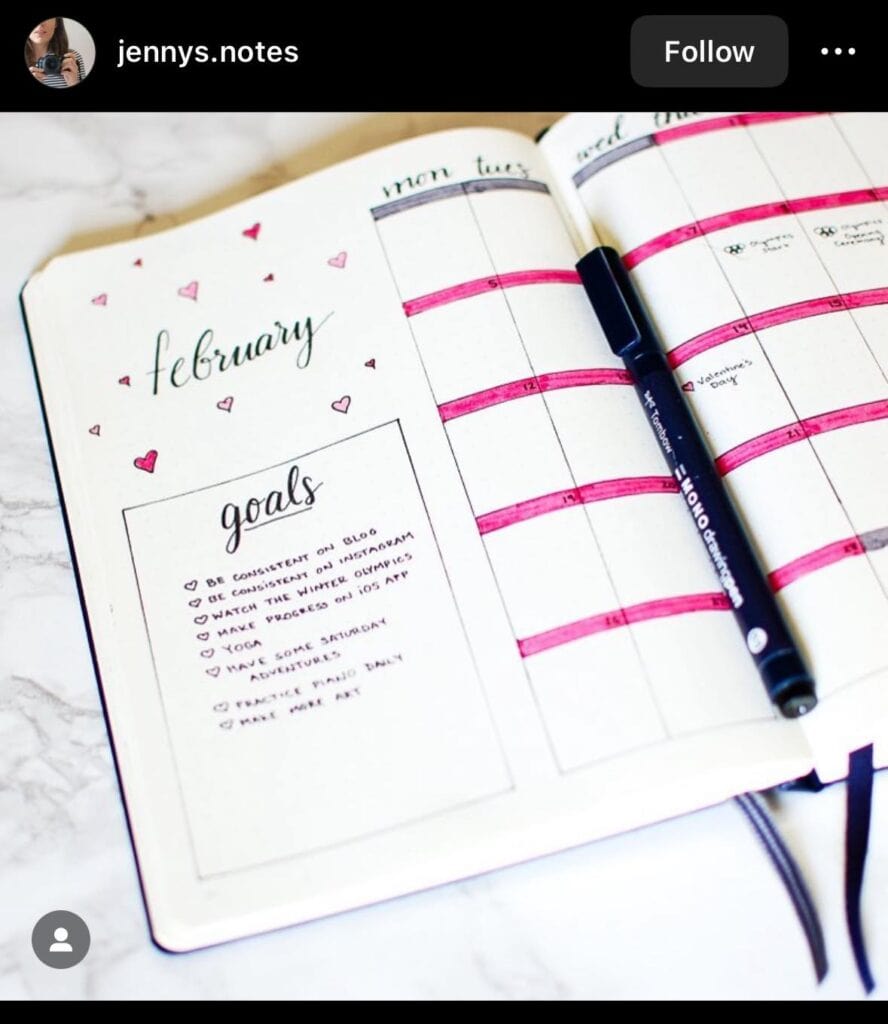 jennys.notes
Follow
february
mon tues
wed
5
12
19
26
7
8
14
15
21
28
Olympics
start
Olympics
Opening
Ceremony!
Valentine's
Day
goals
BE CONSISTENT ON BLOG
BE CONSISTENT ON INSTAGRAM
WATCH THE WINTER OLYMPICS
MAKE PROGRESS ON iOS APP
YOGA
HAVE SOME SATURDAY
ADVENTURES
PRACTICE PIANO DAILY
MAKE MORE ART
Tombow
MONO drawing pen